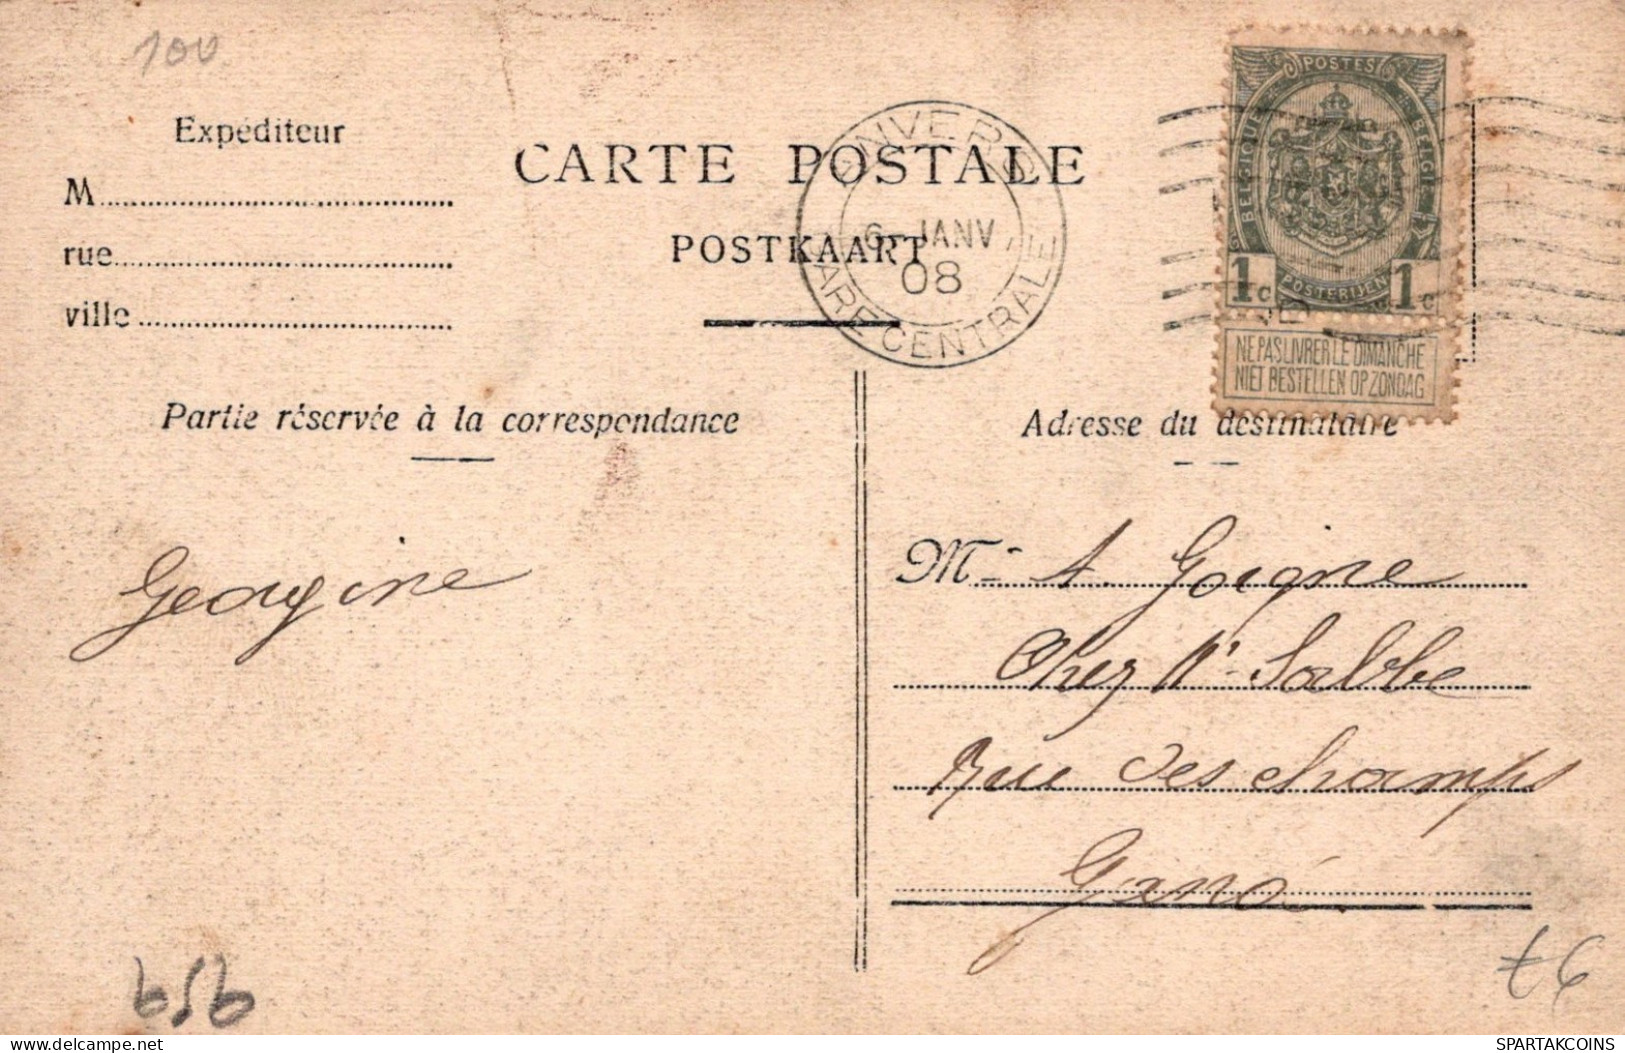 100
Expéditeur
M
rue
ville
CARTE POSTALE
POSTKAART
ANVERS
6-JANV
08
GARE CENTRALE
POSTES
BELGIQUE
BELGIË
POSTERIJEN
1c 1c
NE PAS LIVRER LE DIMANCHE
NIET BESTELLEN OP ZONDAG
Partie réservée à la correspondance
Georgine
Adresse du destinataire
M A. Goigne
Chez Mr Sabbe
Rue des champs
Gand
t6
SPARTAKCOINS